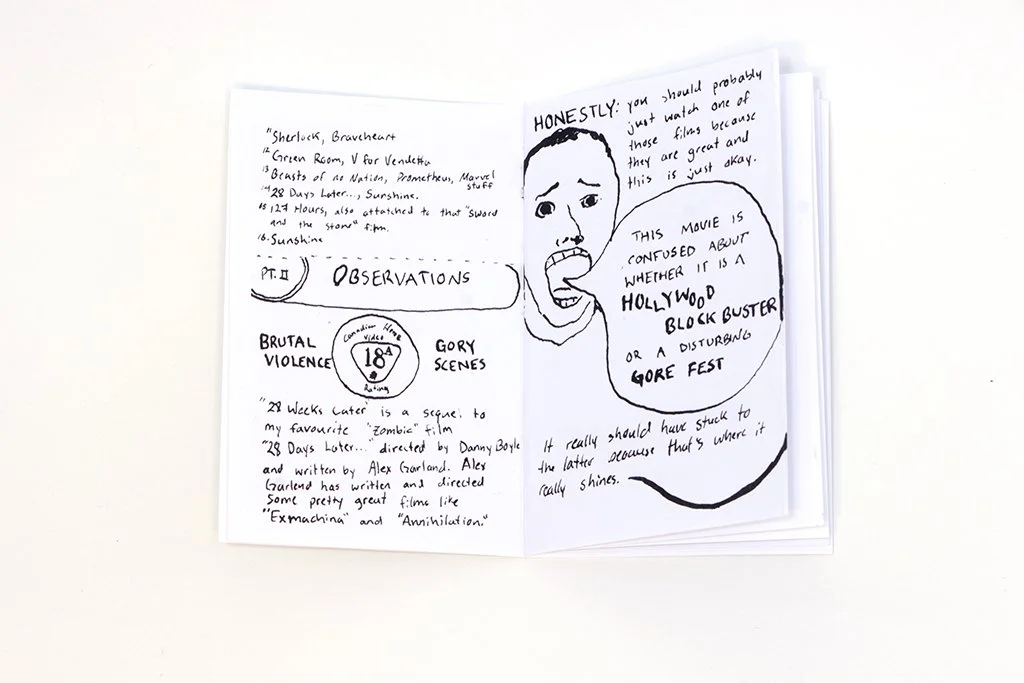 "Sherlock, Braveheart
12 Green Room, V for Vendetta
13 Beasts of no Nation, Prometheus, Marvel
stuff
14 28 Days Later..., Sunshine.
15 127 Hours, also attatched to that "Sword
and the stone" film.
16. Sunshine
PT. II
OBSERVATIONS
BRUTAL
VIOLENCE
Canadian Home
Video
18A
Rating
GORY
SCENES
"28 Weeks Later" is a sequel to
my favourite "Zombie" film
"28 Days Later..." directed by Danny Boyle
and written by Alex Garland. Alex
Garland has written and directed
some pretty great films like
"Exmachina" and "Annihilation."
HONESTLY: you should probably
just watch one of
those films because
they are great and
this is just okay.
THIS MOVIE IS
CONFUSED ABOUT
WHETHER IT IS A
HOLLYWOOD
BLOCKBUSTER
OR A DISTURBING
GORE FEST
It really should have stuck to
the latter because that's where it
really shines.